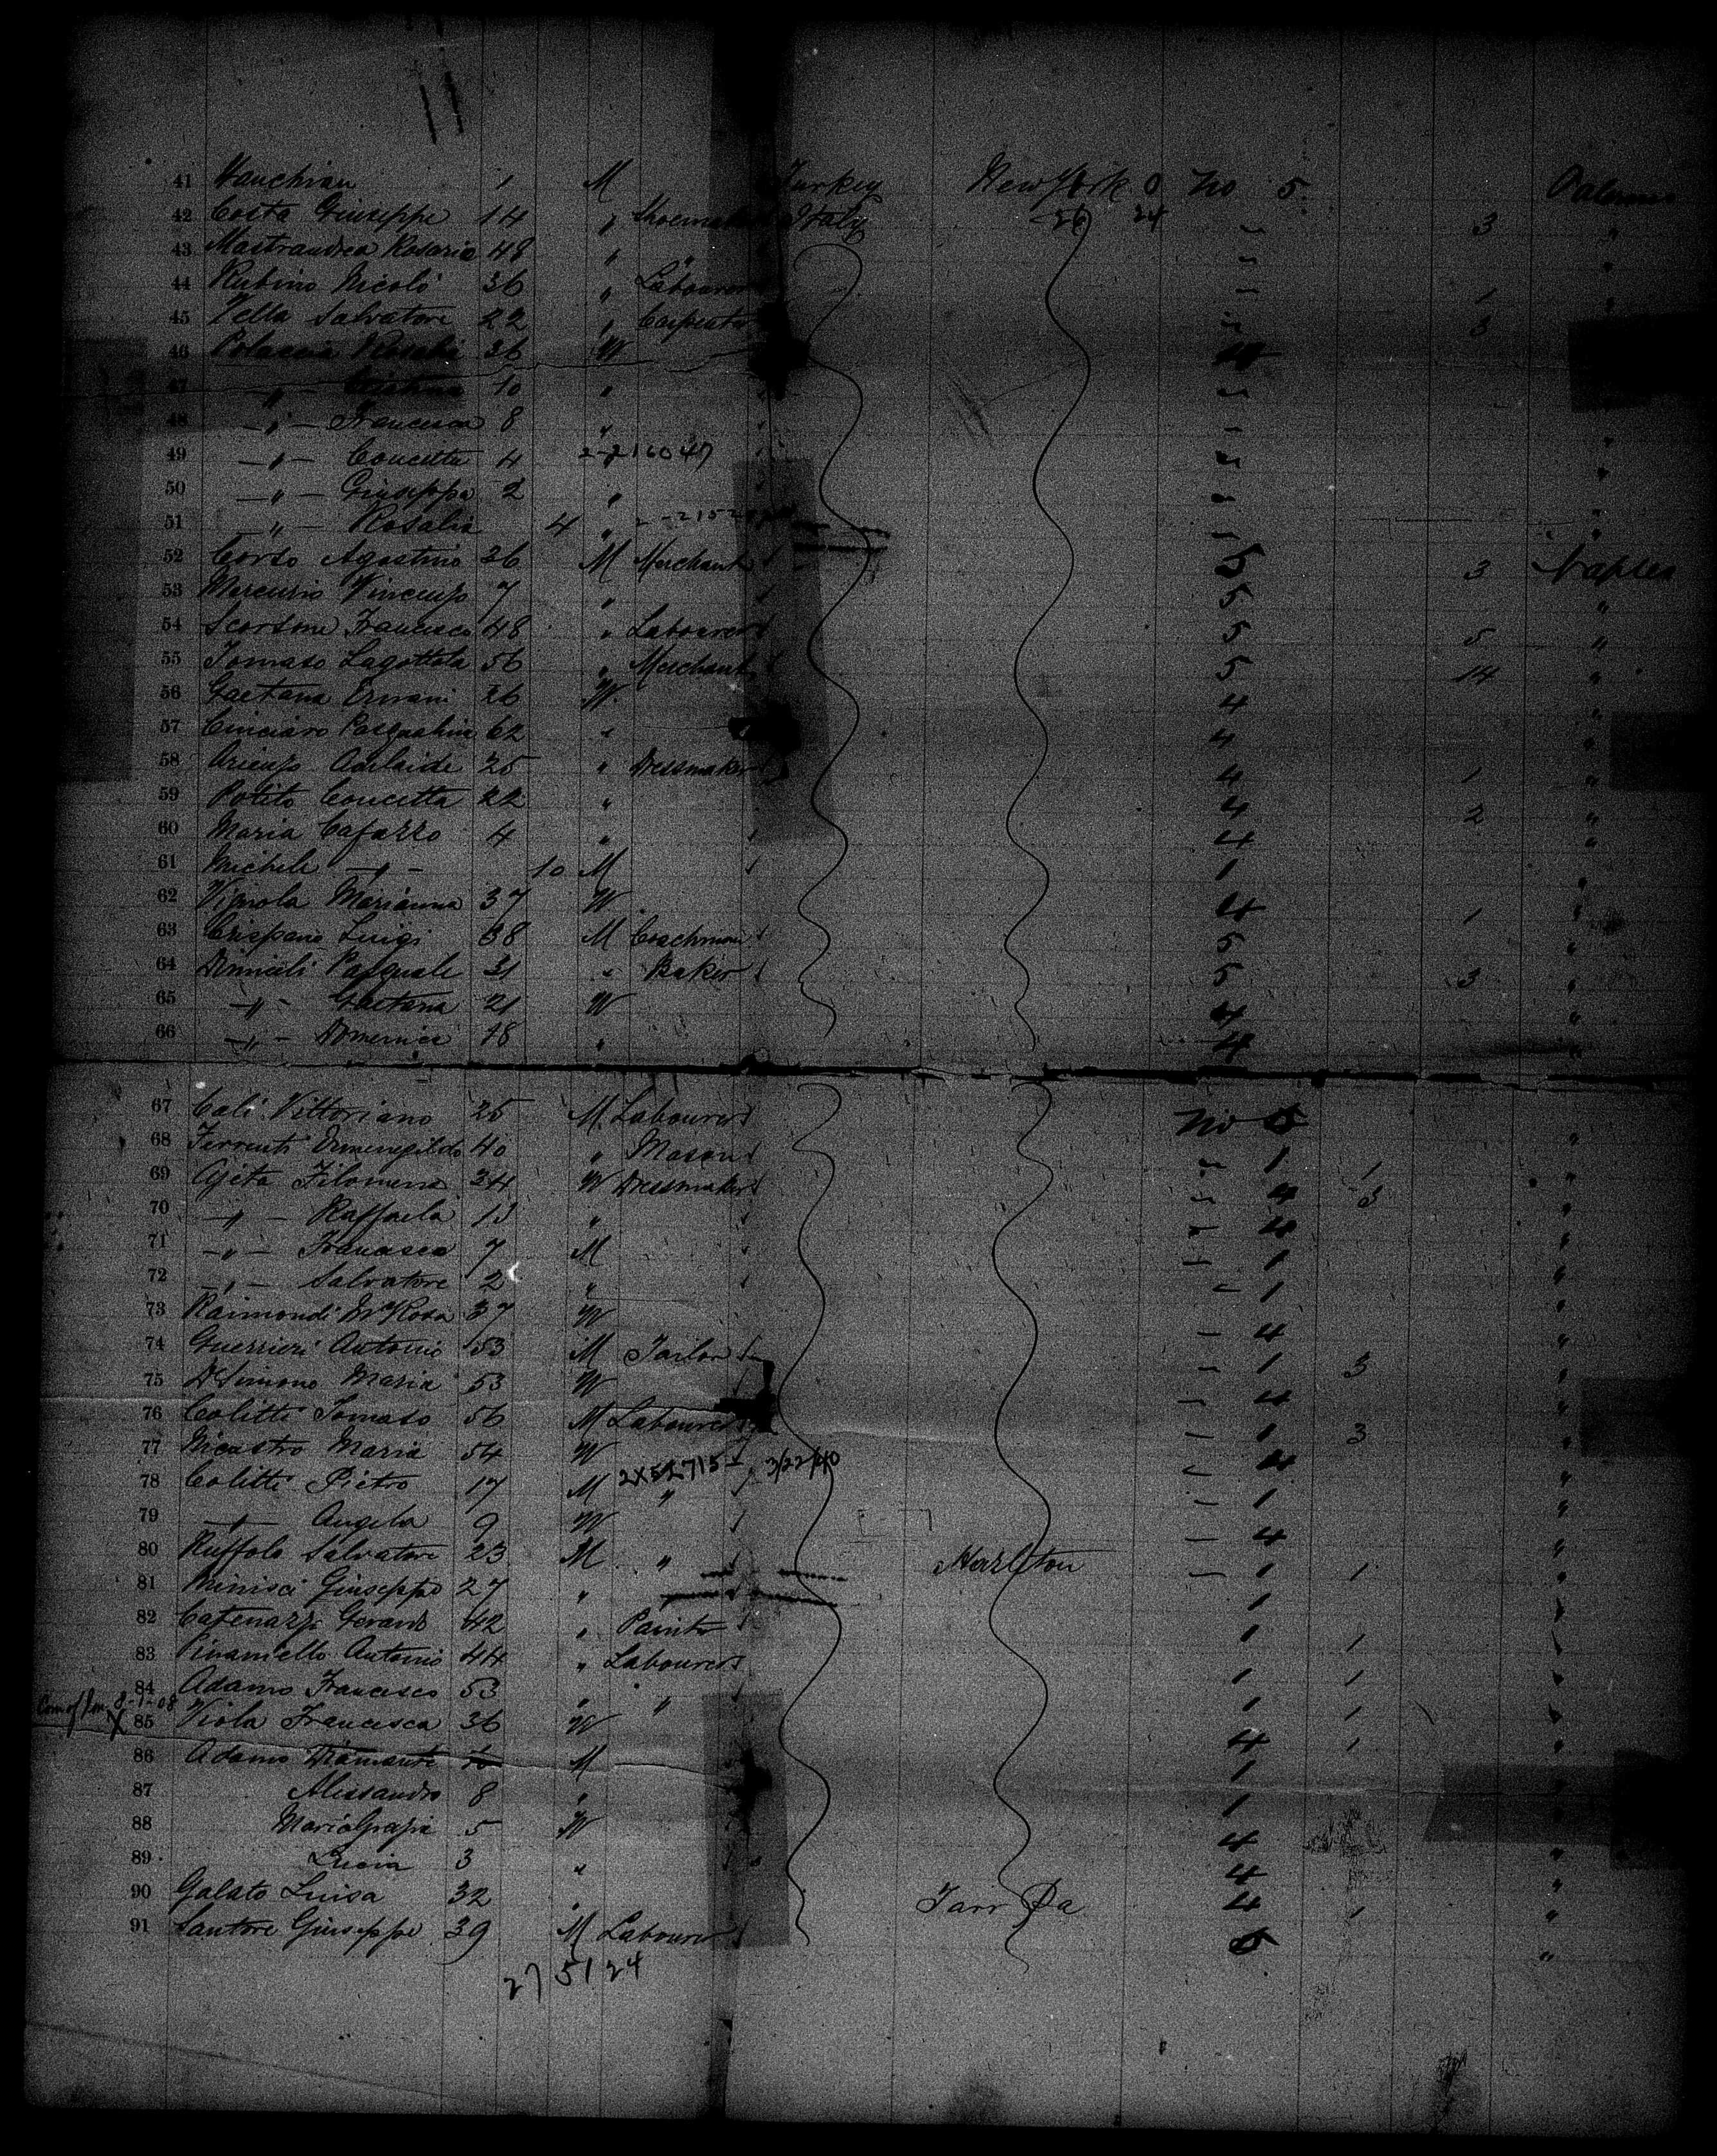 41 Hauchian 1 M Turkey New York 0 no 5. Palermo
42 Costa Giuseppe 14 " Shoemaker Italy 26 24 — 3 "
43 Mastrandrea Rosario 48 " " — "
44 Rubino Nicolò 36 " Labourer — 1 "
45 Vella Salvatore 22 " Carpenter " 3 "
46 Polaccia Rosalia 36 W
47 —"— 10 " —
48 —"— Francesca 8 " — "
49 —"— Concetta 4 2-216047 — "
50 —"— Giuseppa 2 " — "
51 —"— Rosalia 4 " — "
52 Corso Agostino 36 M Merchant 5 3 Naples
53 Mercurio Vincenzo 7 " 5 "
54 Scorsone Francesco 48 " Labourer 5 5 "
55 Tomaso Lagottola 56 " Merchant 5 14 "
56 Gaetana Ernani 26 W. 4 "
57 Cinciaro Pasqualina 62 " 4 "
58 Arienzo Adelaide 25 " Dressmaker 4 1 "
59 Polito Concetta 22 " 4 2 "
60 Maria Cafazzo 4 " 4 "
61 Michele —"— 10 M 1 "
62 Vignola Marianna 37 W 4 1 "
63 Crispano Luigi 38 M Coachman 5 "
64 Pasquale 31 " Baker 5 3 "
65 —"— Gaetana 21 W 4 "
66 —"— Domenica 18 " 4 "
67 Cali Vittoriano 25 M. Labourer no 5 "
68 Ferrenti Ermenegildo 40 " Mason — 1 1 "
69 Ajeta Filomena 34 W Dressmaker — 4 3 "
70 —"— Raffaela 13 " — 4 "
71 —"— Francesco 7 M — 1 "
72 —"— Salvatore 2 " — 1 "
73 Raimondi Ma Rosa 37 W — 4 "
74 Guerrieri Antonio 53 M Tailor — 1 3 "
75 DeSimone Maria 53 W — 4 "
76 Colitti Tomaso 56 M Labourer — 1 3 "
77 Nicastro Maria 54 W — 4 "
78 Colitti Pietro 17 M 2X52715 3/22/40 " — 1 "
79 —"— Angela 9 W — 4 "
80 Ruffolo Salvatore 23 M " Hazleton — 1 1 "
81 Minisci Giuseppe 27 " 1 "
82 Catenazzi Gerardo 42 " Painter 1 1 "
83 Antonio 44 " Labourer 1 1 "
84 Adamo Francesco 53 " " 1 1 "
8-1-08 X 85 Viola Francesca 36 W 4 1 "
86 Adamo Diamante 10 M 1 "
87 Alessandro 8 " 1
88 MariaGrazia 5 W 4
89 Lucia 3 " 4 "
90 Galato Luisa 32 " Tarr Pa 4 1 "
91 Santore Giuseppe 39 M Labourer 5 "
275124